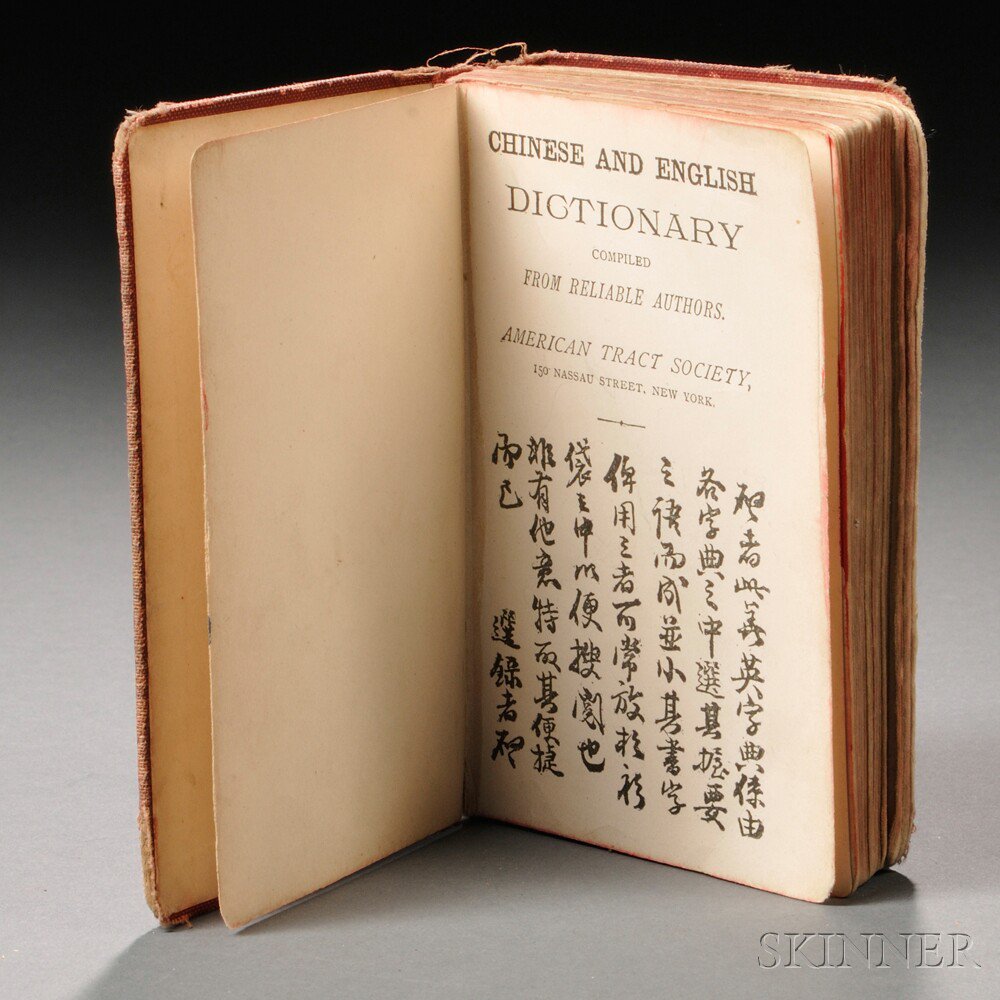 CHINESE AND ENGLISH
DICTIONARY
COMPILED
FROM RELIABLE AUTHORS.
AMERICAN TRACT SOCIETY,
150 NASSAU STREET, NEW YORK.
啟者此華英字典係由
各字典之中選其握要
之語而成並小其書字
俾用之者可常放於衫
袋之中以便搜閱也
非有他意特取其便捷
而已 選錄者啟
SKINNER